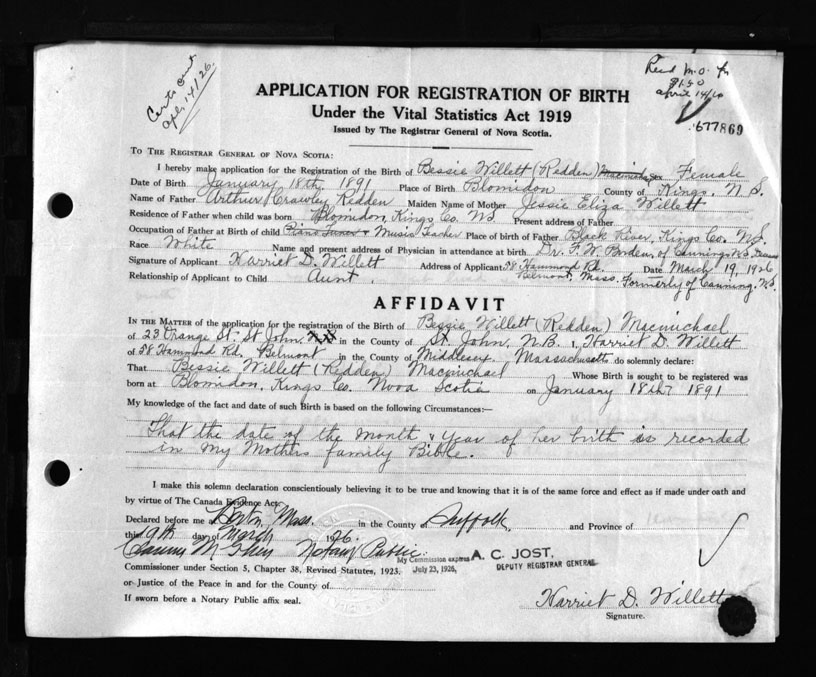 Certs out
Apl. 14/26.
Recd M.O. for
$1.50
April 14/26
677869
APPLICATION FOR REGISTRATION OF BIRTH
Under the Vital Statistics Act 1919
Issued by The Registrar General of Nova Scotia.
TO THE REGISTRAR GENERAL OF NOVA SCOTIA:
I hereby make application for the Registration of the Birth of Bessie Willett (Redden) Macmichael Sex Female
Date of Birth January 18th, 1891 Place of Birth Blomidon County of Kings, N.S.
Name of Father Arthur Crawley Redden Maiden Name of Mother Jessie Eliza Willett
Residence of Father when child was born Blomidon, Kings Co. NS Present address of Father
Occupation of Father at Birth of child Piano Tuner & Music Teacher Place of birth of Father Black River, Kings Co. NS.
Race White Name and present address of Physician in attendance at birth Dr. F. W. Borden, of Canning, N.S.
Signature of Applicant Harriet D. Willett Address of Applicant 58 Hammond Rd. Date March 19, 1926
Relationship of Applicant to Child Aunt. Belmont, Mass. Formerly of Canning, N.S.
AFFIDAVIT
IN THE MATTER of the application for the registration of the Birth of Bessie Willett (Redden) Macmichael
of 23 Orange St. St John, in the County of St. John, N.B. I, Harriet D. Willett
of 58 Hammond Rd, Belmont in the County of Middlesex, Massachusetts do solemnly declare:
That Bessie Willett (Redden) Macmichael Whose Birth is sought to be registered was
born at Blomidon, Kings Co. Nova Scotia on January 18th 1891
My knowledge of the fact and date of such Birth is based on the following Circumstances:—
That the date of the month & year of her birth is recorded
in my Mothers family Bible.
I make this solemn declaration conscientiously believing it to be true and knowing that it is of the same force and effect as if made under oath and
by virtue of The Canada Evidence Act.
Declared before me at Boston, Mass. in the County of Suffolk, and Province of
this 19th day of March 1926.
Notary Public. My Commission expires A. C. JOST,
Commissioner under Section 5, Chapter 38, Revised Statutes, 1923. July 23, 1926. DEPUTY REGISTRAR GENERAL
or Justice of the Peace in and for the County of
If sworn before a Notary Public affix seal.
Harriet D. Willett
Signature.